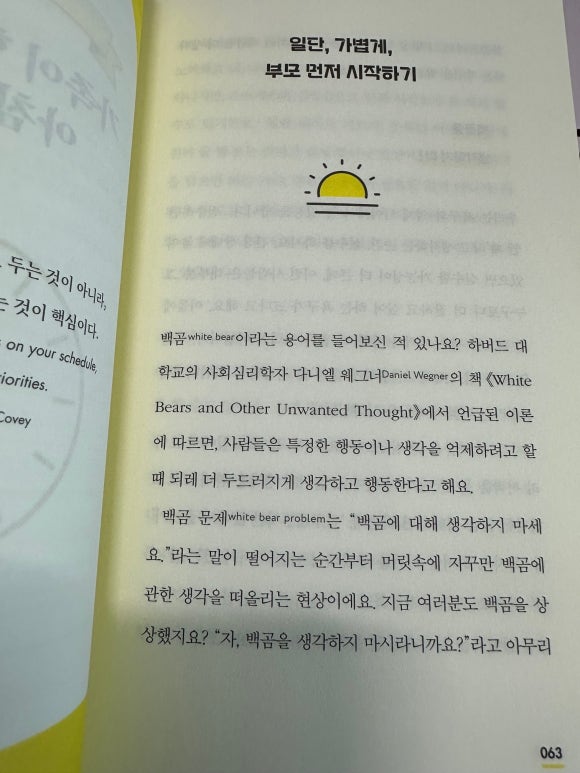 두는 것이 아니라,
는 것이 핵심이다.
s on your schedule,
iorities.
Covey
일단, 가볍게,
부모 먼저 시작하기
백곰white bear이라는 용어를 들어보신 적 있나요? 하버드 대
학교의 사회심리학자 다니엘 웨그너Daniel Wegner의 책 《White
Bears and Other Unwanted Thought》에서 언급된 이론
에 따르면, 사람들은 특정한 행동이나 생각을 억제하려고 할
때 되레 더 두드러지게 생각하고 행동한다고 해요.
백곰 문제white bear problem는 “백곰에 대해 생각하지 마세
요.”라는 말이 떨어지는 순간부터 머릿속에 자꾸만 백곰에
관한 생각을 떠올리는 현상이에요. 지금 여러분도 백곰을 상
상했지요? “자, 백곰을 생각하지 마시라니까요?”라고 아무리
063